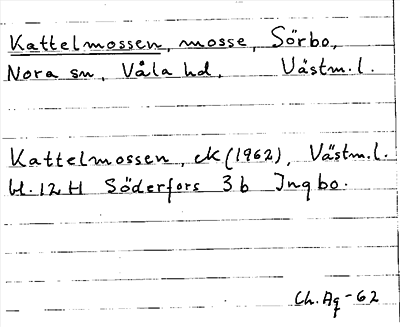 Kattelmossen, mosse, Sörbo,
Nora sn, Våla hd, Västm.l.
Kattelmossen, ek (1962), Västm.l.
bl. 12 H Söderfors 3 b Ingbo.
Ch. Ag -62